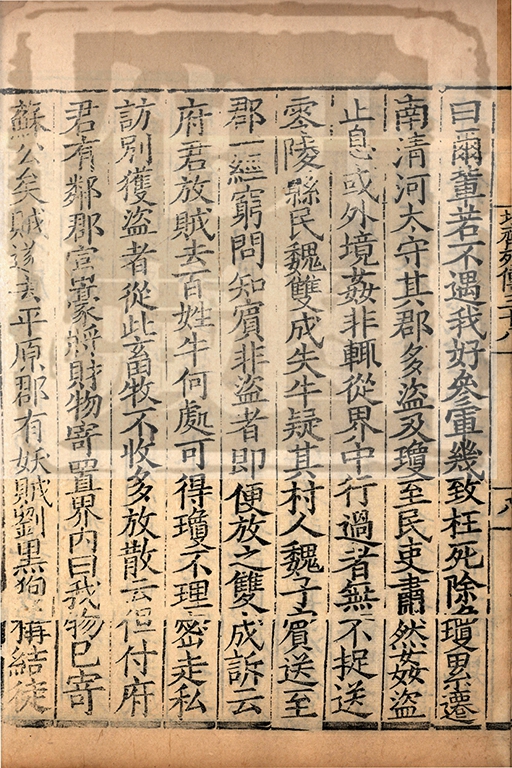 曰爾輩若不遇我好參軍幾致枉死除瓊累遷
南清河太守其郡多盜及瓊至民吏肅然姦盜
止息或外境姦非輒從界中行過者無不捉送
零陵縣民魏雙成失牛疑其村人魏子賓送至
郡一經窮問知賓非盜者即便放之雙成訴云
府君放賊去百姓牛何處可得瓊不理密走私
訪別獲盜者從此畜牧不收多放散云但付府
君有鄰郡富豪將財物寄置界內曰我物已寄
蘇公矣賊遂去平原郡有妖賊劉黑狗構結徒